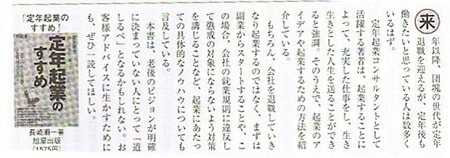 来
年以降、団塊の世代が定年
退職を迎えるが、定年後も
働きたいと思っている人は数多く
いるはず。
定年起業コンサルタントとして
活躍する著者は、起業することに
よって、充実した仕事をし、生き
生きとした人生を送ることができ
ると強調。そのうえで、起業のア
イデアや起業するための方法を紹
介している。
もちろん、会社を退職していき
なり起業するのではなく、まずは
副業からスタートすることや、こ
の場合、会社の就業規則に違反し
て懲戒の対象にならないよう対策
を講じることなど、起業にあたっ
ての具体的なノウハウについても
言及している。
本書は、老後のビジョンが明確
に決まっていない人にとって「道
しるべ」となるかもしれない。お
客様アドバイスに生かすために
も、ぜひ一読してほしい。
『定年起業の
すすめ』
定年起業の
すすめ
長崎 一著
旭屋出版
(1575円)